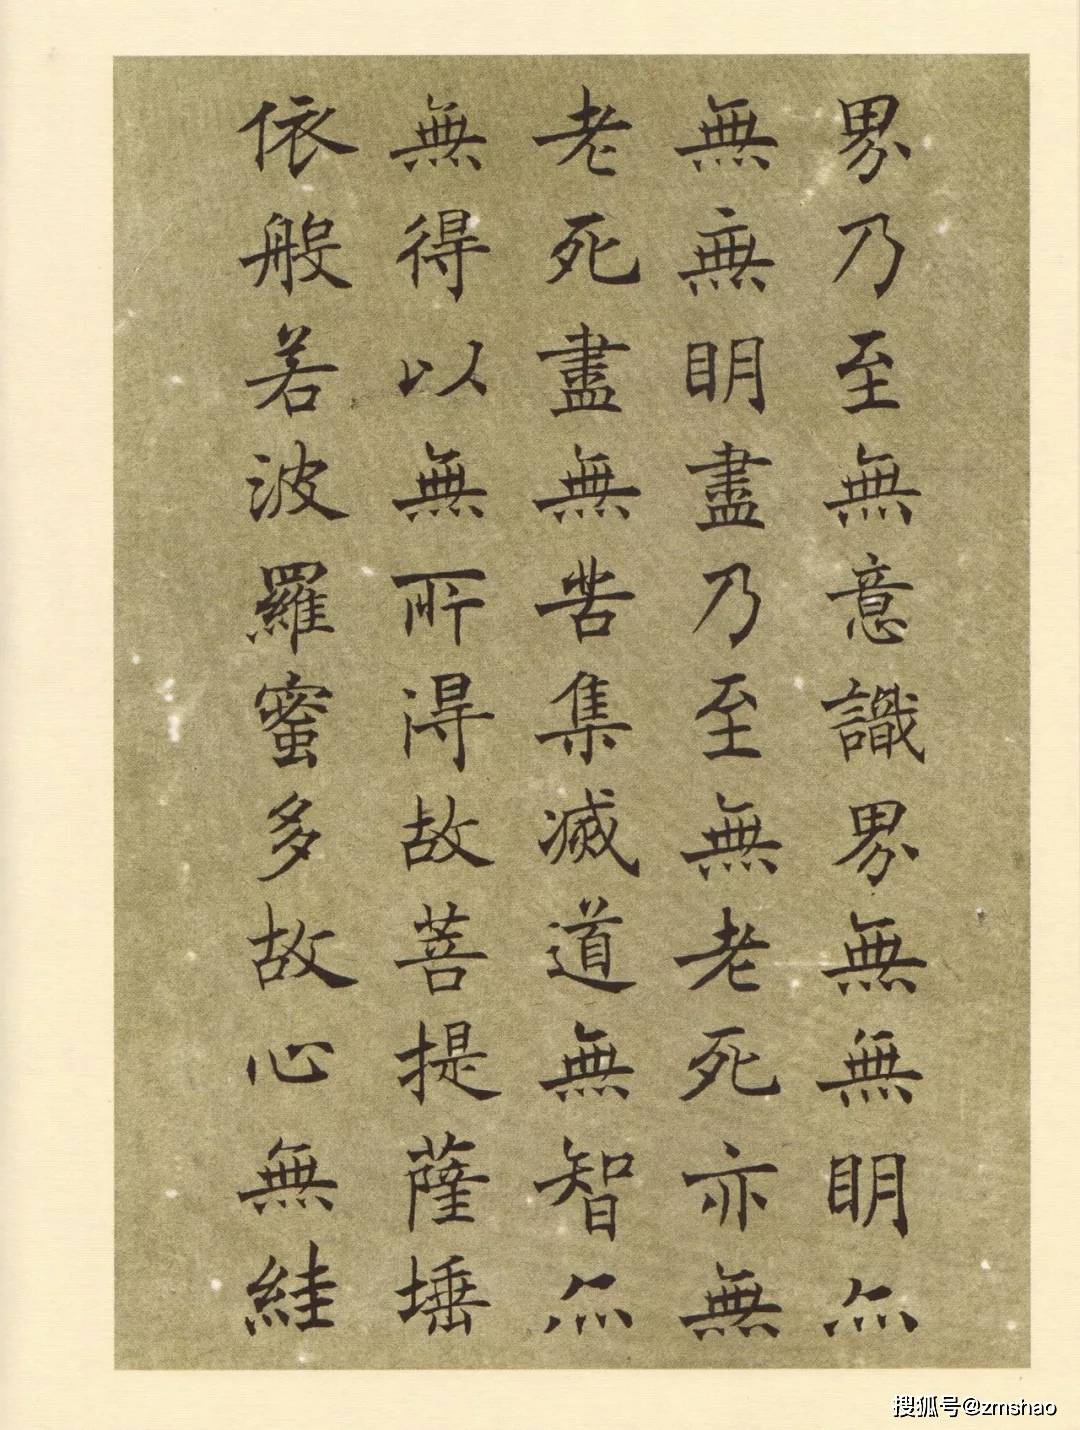 界乃至無意識界無無明亦
無無明盡乃至無老死亦無
老死盡無苦集滅道無智亦
無得以無所得故菩提薩埵
依般若波羅蜜多故心無絓
搜狐号@zmshao